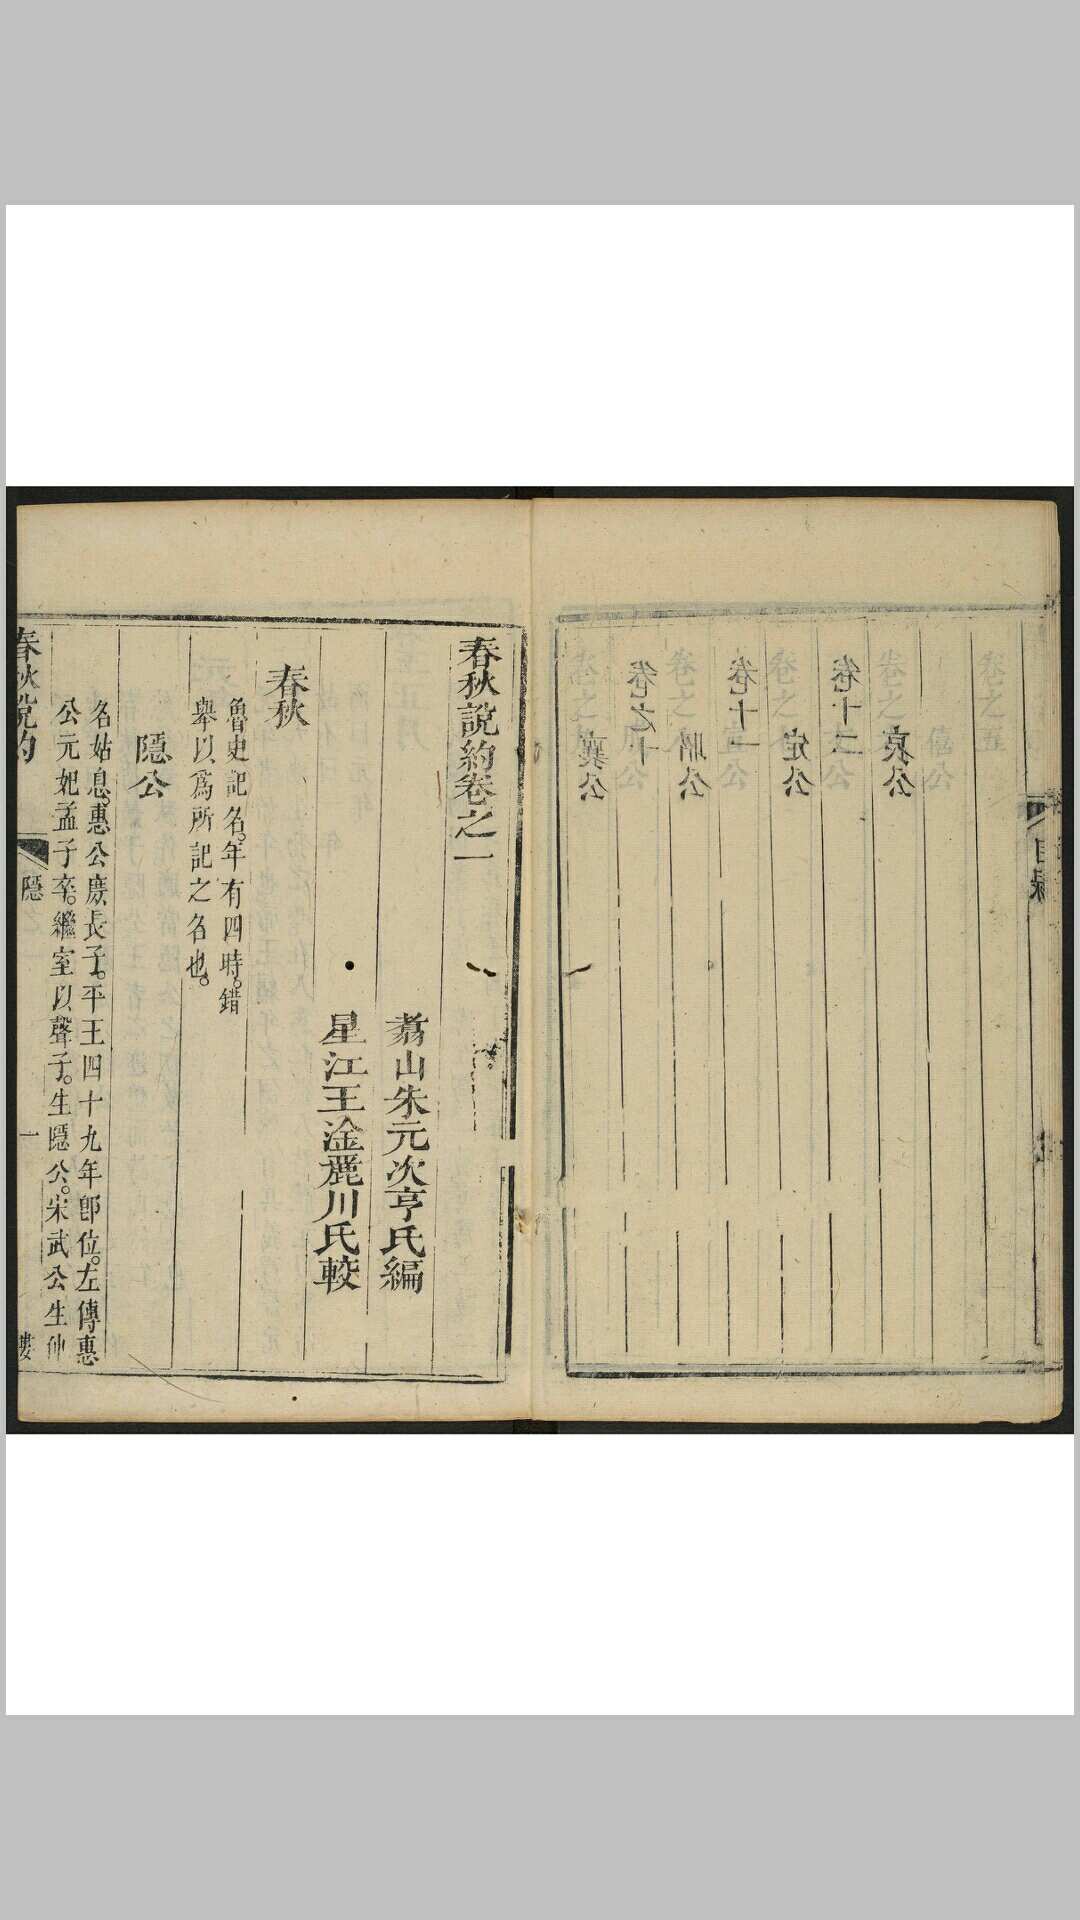 目錄
襄公
卷之十
昭公
卷十一
定公
卷十二
哀公
春秋說約卷之一
翥山朱元次亨氏編
星江王淦麗川氏較
春秋
魯史記名。年有四時。錯
舉以爲所記之名也。
隱公
名姑息。惠公庶長子。平王四十九年卽位。左傳惠
公元妃孟子卒。繼室以聲子。生隱公。宋武公生仲
春秋說約 隱 一